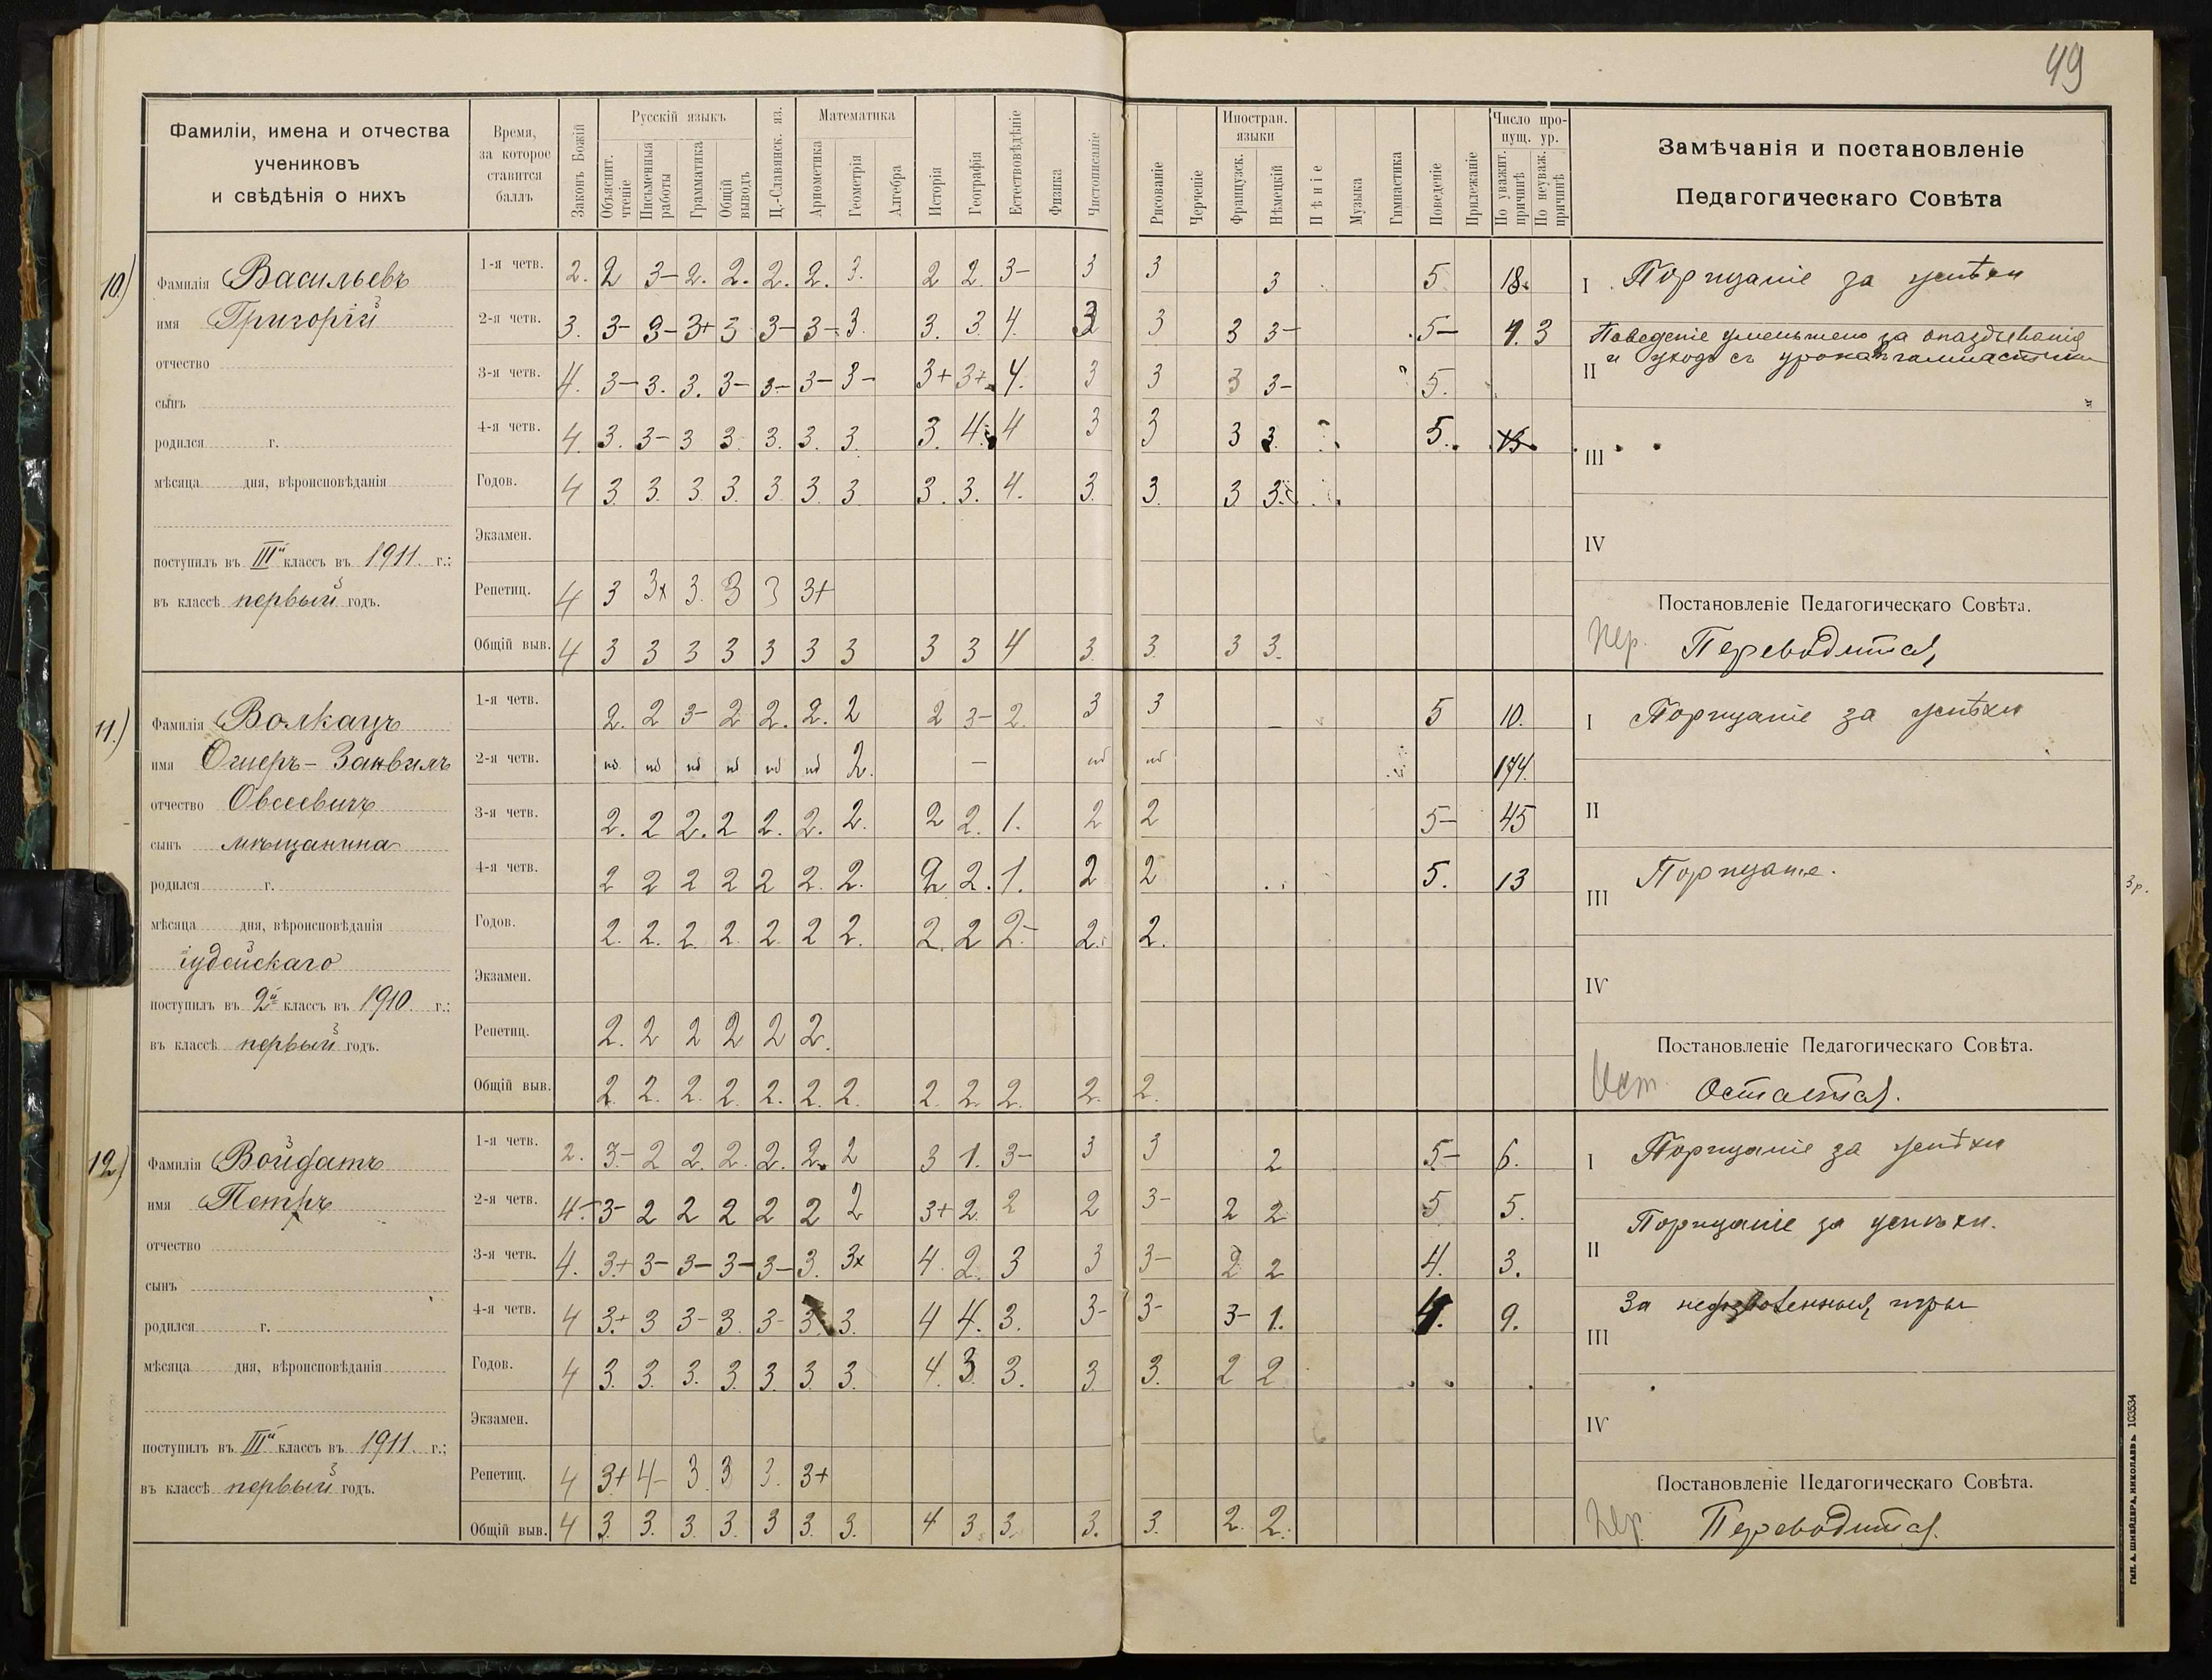 49
Фамиліи, имена и отчества
учениковъ
и свѣдѣнія о нихъ
Время,
за которое
ставится
баллъ
Законъ Божій
Русскій языкъ
Объяснит. чтеніе
Письменныя работы
Грамматика
Общій выводъ
Ц.-Славянск. яз.
Математика
Ариѳметика
Геометрія
Алгебра
Исторія
Географія
Естествовѣдѣніе
Физика
Чистописаніе
Рисованіе
Черченіе
Иностран. языки
Французск.
Нѣмецкій
Пѣніе
Музыка
Гимнастика
Поведеніе
Прилежаніе
Число пропущ. ур.
По уважит. причинѣ
По неуваж. причинѣ
Замѣчанія и постановленіе
Педагогическаго Совѣта
10)
Фамилія Васильевъ
имя Григорій
отчество
сынъ
родился г.
мѣсяца дня, вѣроисповѣданія
поступилъ въ IIIй классъ въ 1911 г.;
въ классѣ первый годъ.
1-я четв. 2. 2 3- 2. 2. 2. 2. 3. 2 2. 3- 3 3 3 5 18.
2-я четв. 3. 3- 3- 3+ 3 3- 3- 3. 3. 3. 4. 3 3 3 3- 5- 4. 3
3-я четв. 4. 3- 3. 3. 3- 3- 3- 3- 3+ 3+ 4. 3 3 3 3- 5.
4-я четв. 4. 3. 3- 3 3. 3. 3. 3. 3. 4 4 3 3 3 3. 5. 15
Годов. 4 3 3. 3. 3. 3 3 3 3. 3. 4. 3. 3. 3 3.
Экзамен.
Репетиц. 4 3 3× 3. 3 3 3+
Общій выв. 4 3 3 3 3 3 3 3 3 3 4 3. 3. 3 3.
I Порицаніе за успѣхи
Поведеніе уменьшено за опаздыванія
II и уходъ съ урока гимнастики
III
IV
Постановленіе Педагогическаго Совѣта.
Пер. Переводится
11.)
Фамилія Волкацъ
имя Ошеръ-Занвилъ
отчество Овсеевичъ
сынъ мѣщанина
родился г.
мѣсяца дня, вѣроисповѣданія
іудейскаго
поступилъ въ 2й классъ въ 1910 г.;
въ классѣ первый годъ.
1-я четв. 2. 2 3- 2 2. 2. 2 2 3- 2. 3 3 - 5 10.
2-я четв. nd nd nd nd nd nd 2. - nd nd 174.
3-я четв. 2. 2 2. 2 2. 2. 2. 2 2. 1. 2 2 5- 45
4-я четв. 2 2 2 2 2 2. 2. 2 2. 1. 2 2 5. 13
Годов. 2. 2. 2. 2. 2. 2 2. 2. 2 2- 2. 2.
Экзамен.
Репетиц. 2. 2 2 2 2 2.
Общій выв. 2. 2. 2. 2. 2. 2. 2. 2. 2. 2. 2. 2.
I Порицаніе за успѣхи
II
III Порицаніе.
3р.
IV
Постановленіе Педагогическаго Совѣта.
Ост. Остается.
12)
Фамилія Войдатъ
имя Петръ
отчество
сынъ
родился г.
мѣсяца дня, вѣроисповѣданія
поступилъ въ IIIй классъ въ 1911 г.;
въ классѣ первый годъ.
1-я четв. 2. 3- 2 2. 2. 2. 2. 2 3 1. 3- 3 3 2 5- 6.
2-я четв. 4- 3- 2 2 2 2 2 2 3+ 2. 2 2 3- 2 2 5 5.
3-я четв. 4. 3+ 3- 3- 3- 3- 3. 3× 4. 2. 3 3 3- 2 2 4. 3.
4-я четв. 4 3+ 3 3- 3. 3- 3. 3. 4 4. 3. 3- 3- 3- 1. 4. 9.
Годов. 4 3. 3. 3. 3. 3. 3 3. 4. 3. 3. 3. 3. 2 2
Экзамен.
Репетиц. 4 3+ 4- 3 3 3. 3+
Общій выв. 4 3. 3. 3. 3. 3 3. 3. 4 3. 3. 3. 3. 2. 2.
I Порицаніе за успѣхи
II Порицаніе за успѣхи.
III За недозволенныя игры
IV
Постановленіе Педагогическаго Совѣта.
Пер. Переводится.
ТИП. А. ШНЕЙДЕРА, НИКОЛАЕВЪ. 103534